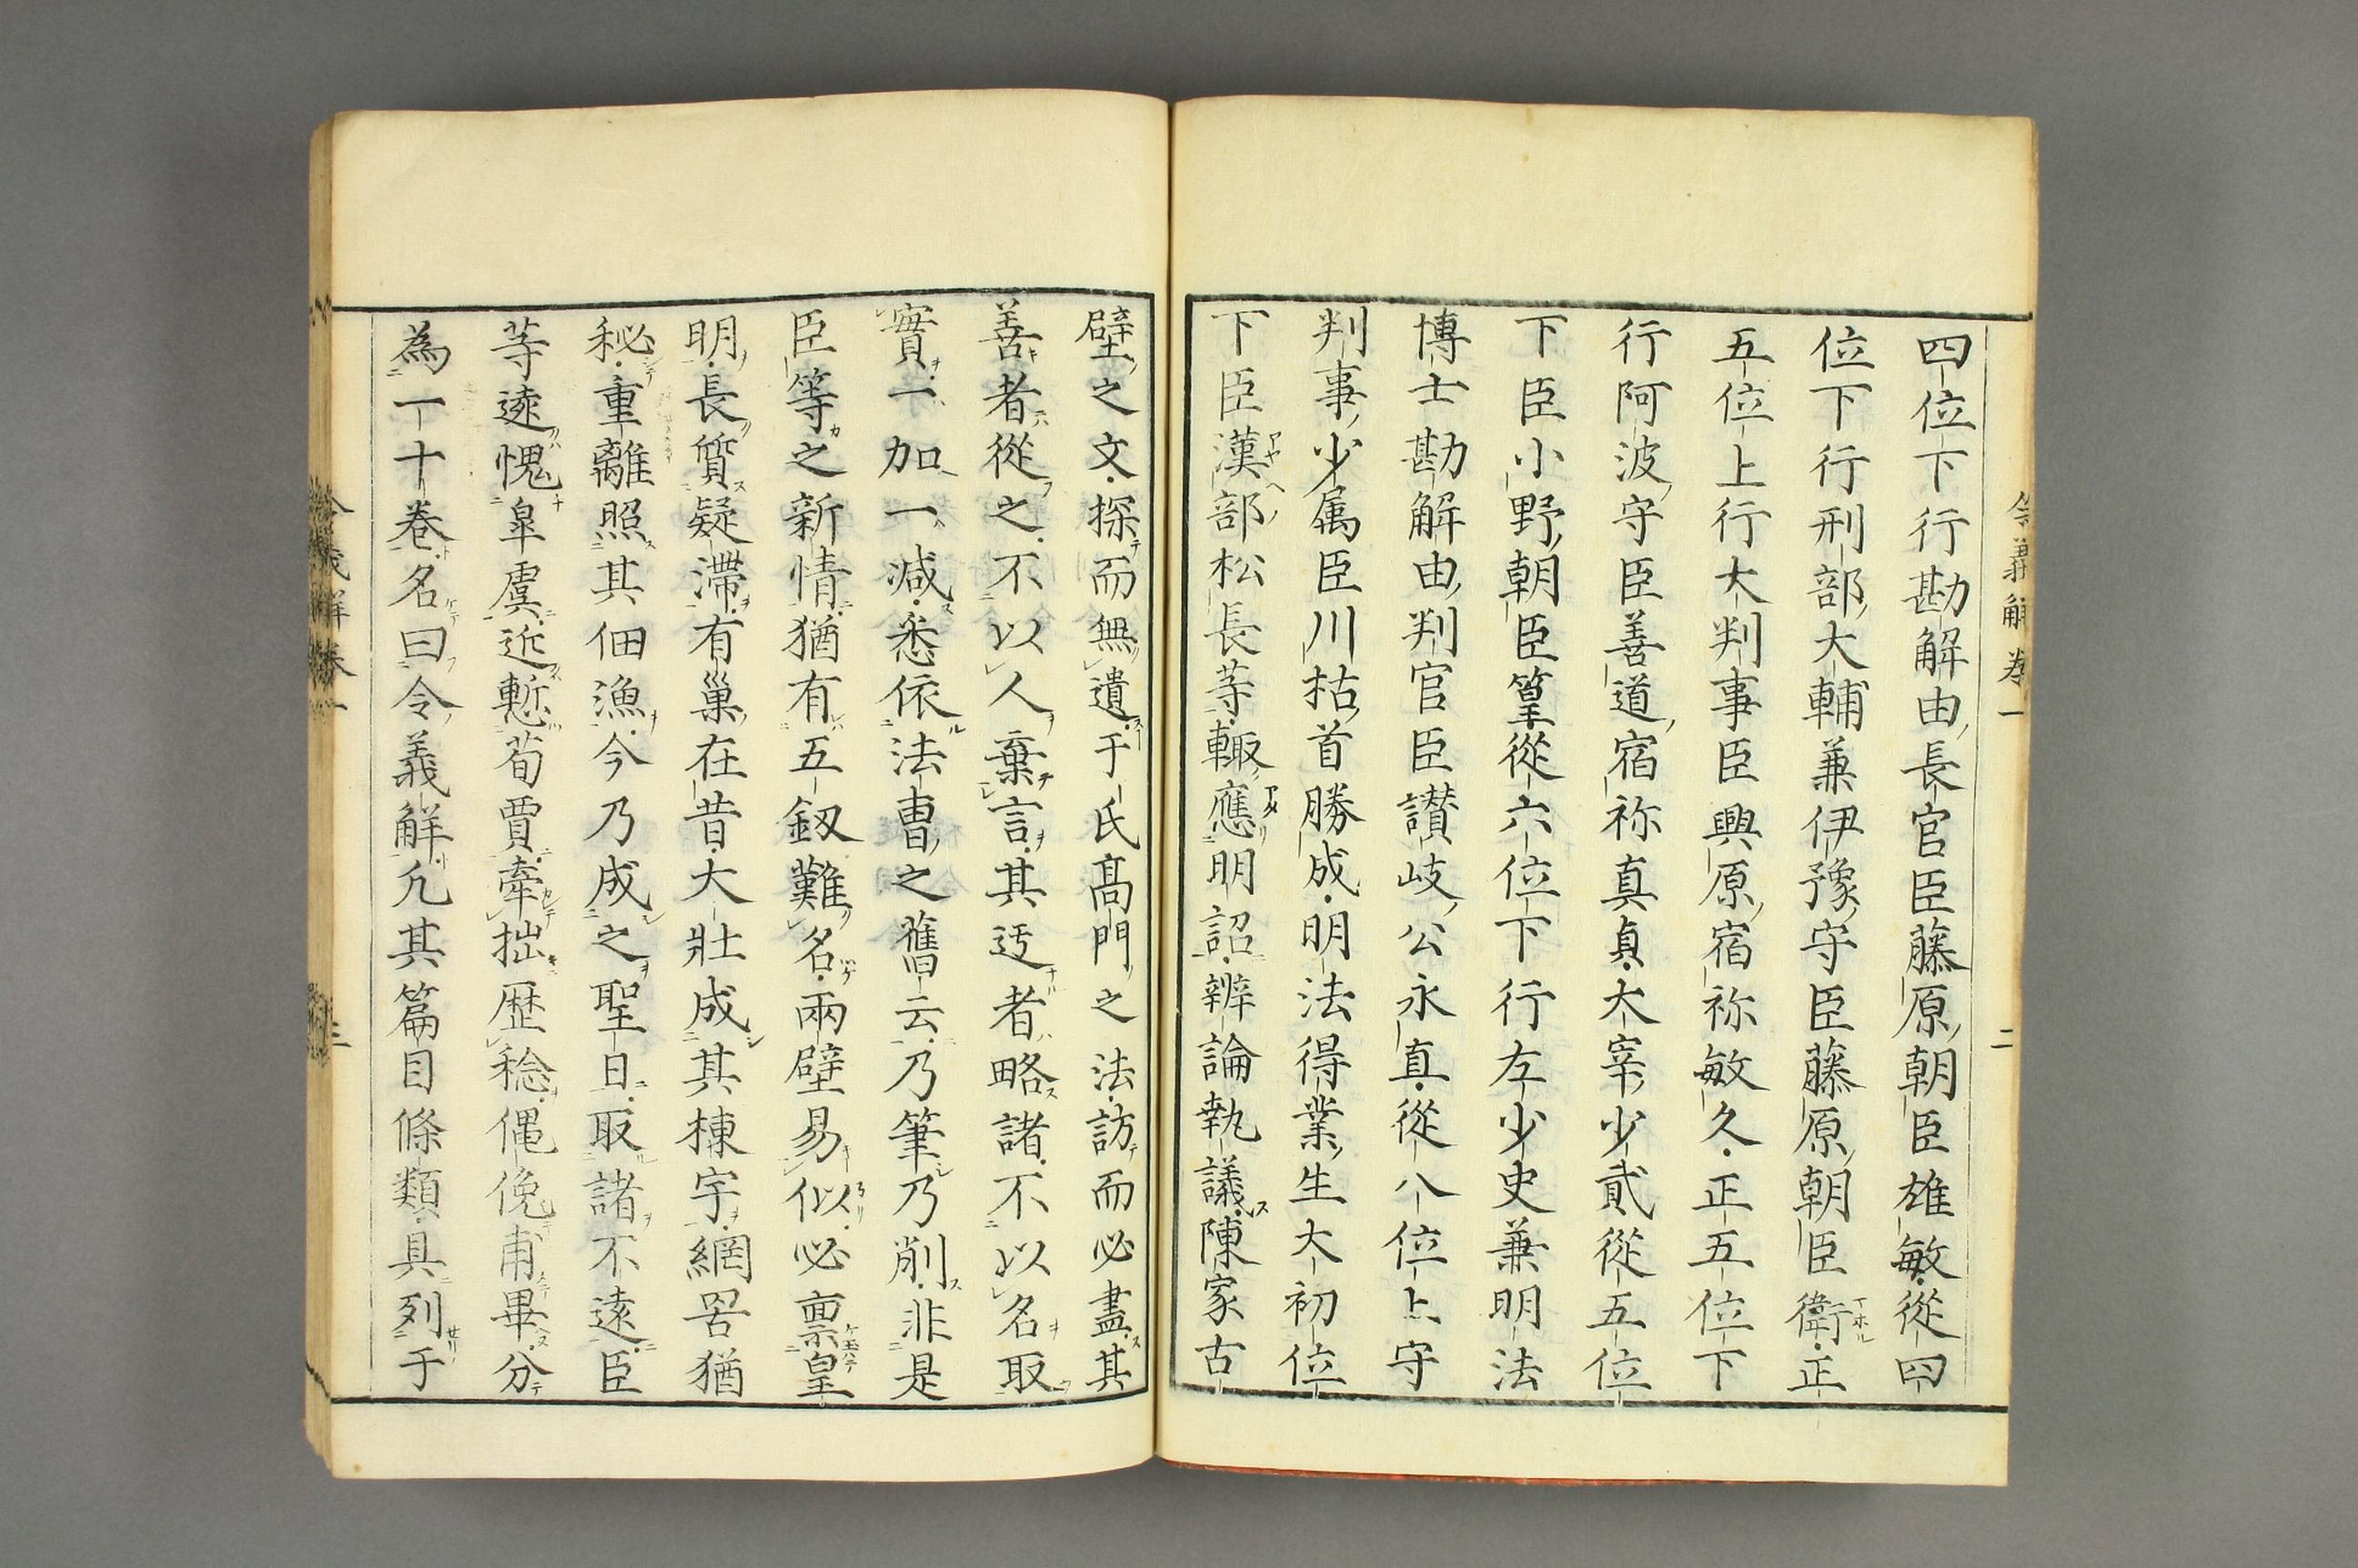 四位下行勘解由長官臣藤原朝臣雄敏從四
位下行刑部大輔兼伊豫守臣藤原朝臣衛正
五位上行大判事臣興原宿祢敏久正五位下
行阿波守臣善道宿祢真貞大宰少貳從五位
下臣小野朝臣篁從六位下行左少史兼明法
博士勘解由判官臣讃岐公永直從八位上守
判事少属臣川枯首勝成明法得業生大初位
下臣漢部松長等輙應明詔辨論執議陳家古
壁之文探而無遺于氏髙門之法訪而必盡其
善者從之不以人棄言其迃者略諸不以名取
實一加一减悉依法曹之舊云乃筆乃削非是
臣等之新情猶有五釼難名兩壁易似必禀皇
明長質疑滯有巢在昔大壯成其棟宇網罟猶
秘重離照其佃漁今乃成之聖日取諸不遠臣
等遠愧皐虞近慙荀賈牽拙歴稔僶俛甫畢分
為一十卷名曰令義解凢其篇目條類具列于
令義解卷一
二
令義解卷一
三